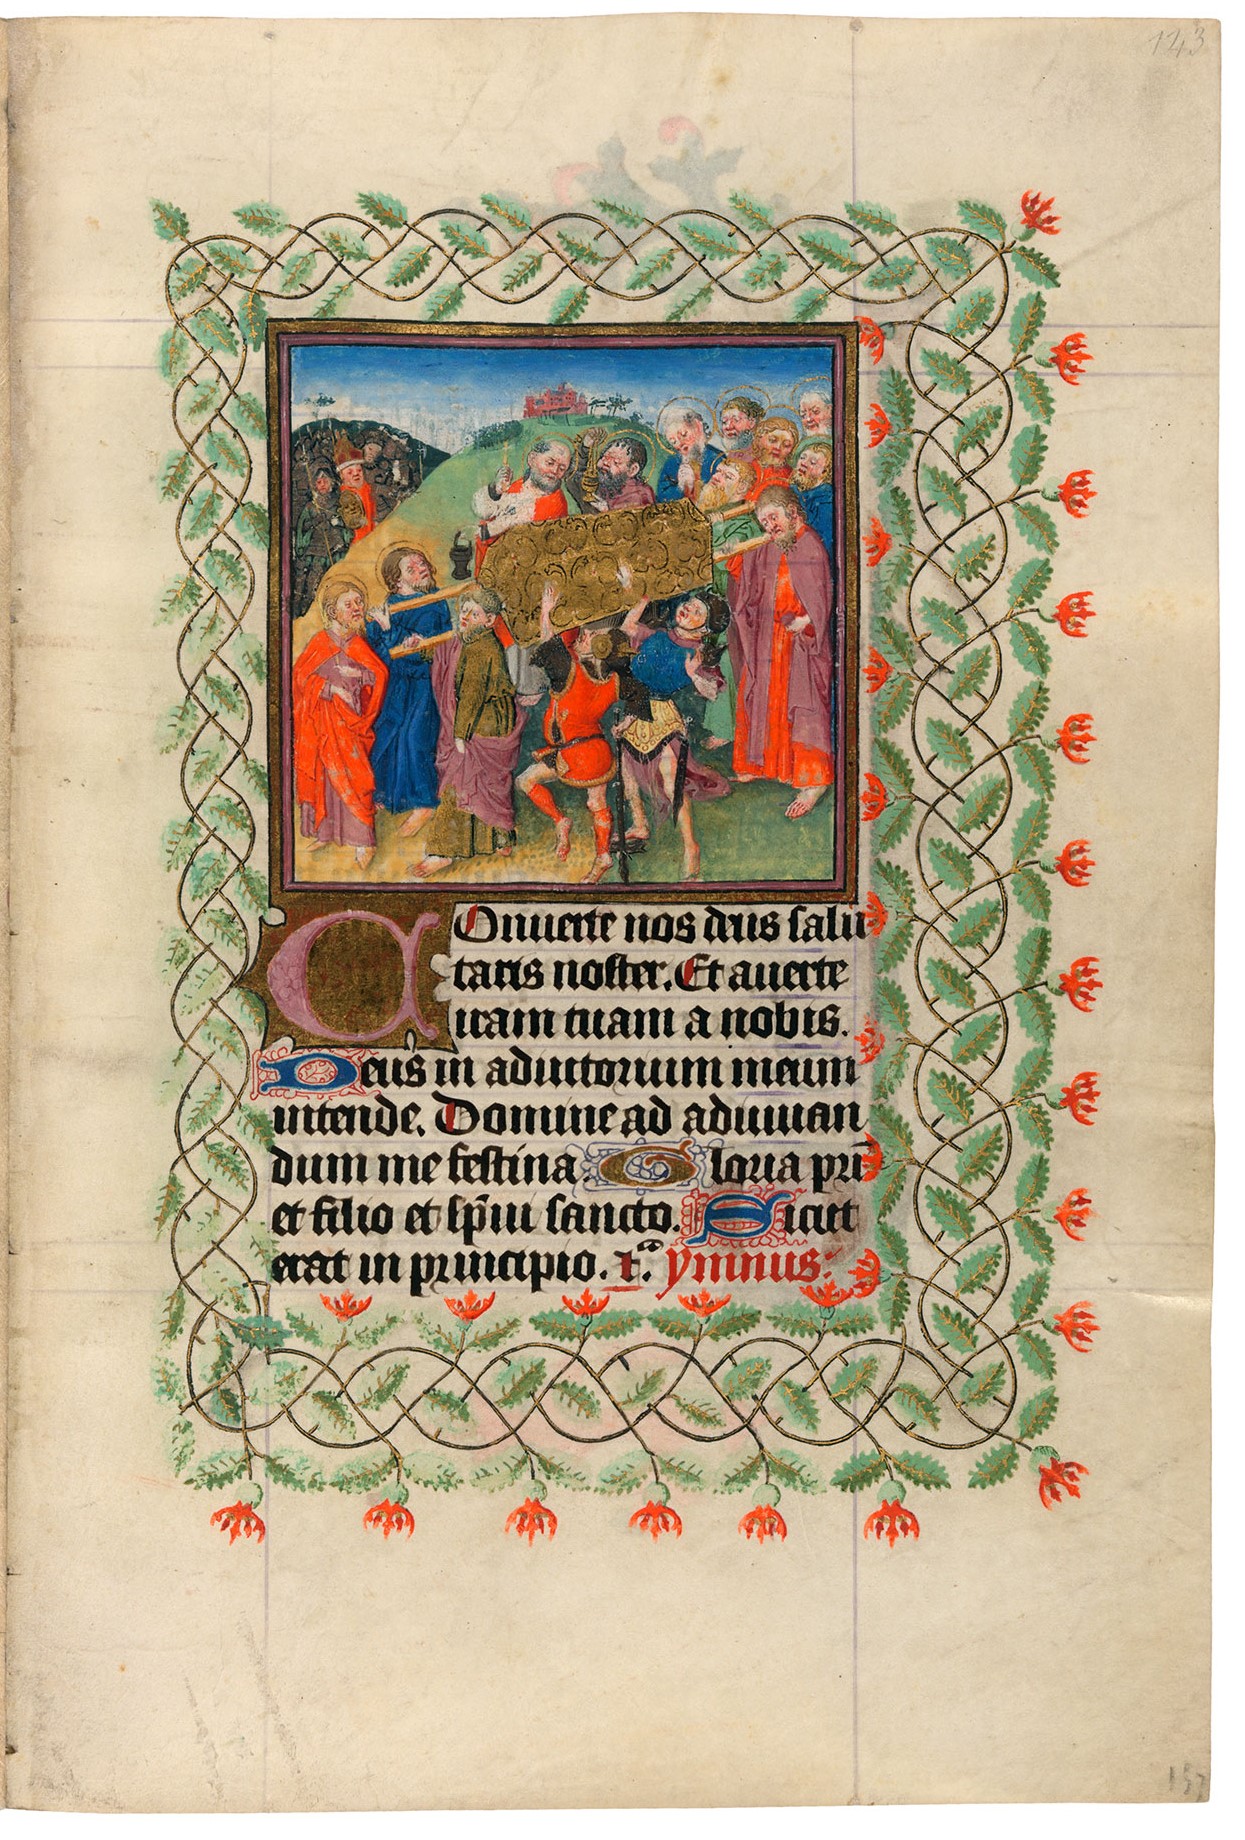 143
Conuerte nos deus salu
taris noster. Et auerte
iram tuam a nobis.
Deus in adiutorium meum
intende. Domine ad adiuuan
dum me festina. Gloria pri̅
et filio et sp̅iu sancto. Sicut
erat in principio. ymnus:
157